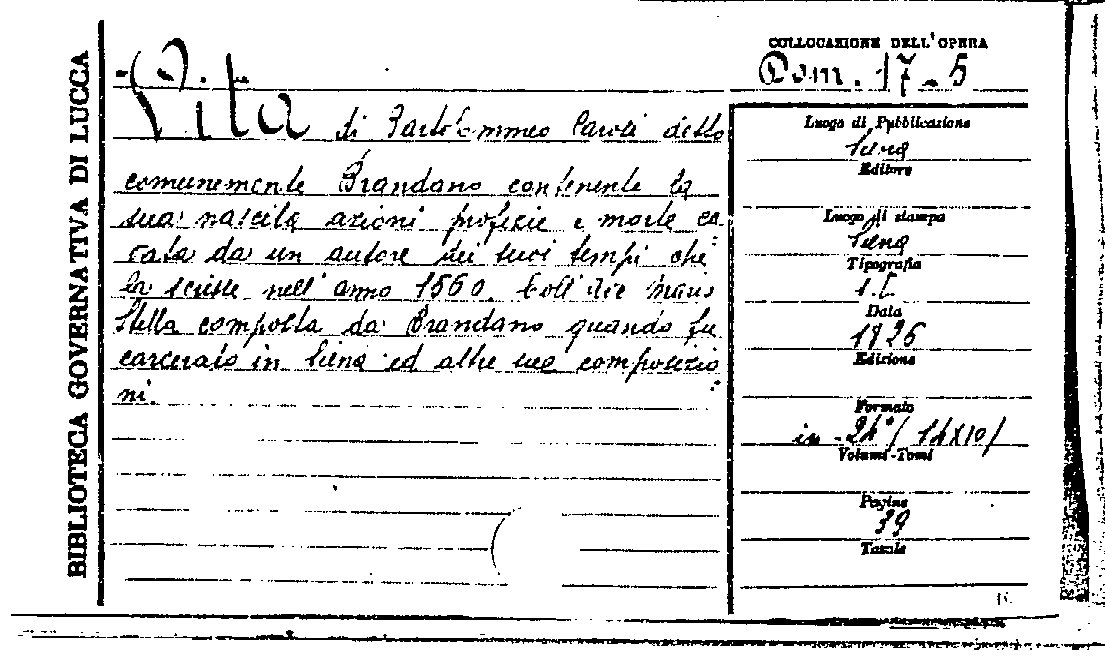 BIBLIOTECA GOVERNATIVA DI LUCCA
COLLOCAZIONE DELL'OPERA
Dom. 17-5
Vita di Bartolommeo Caroli detto
comunemente Brandano contenente la
sua nascita azioni profezie e morte ca
vata da un autore dei suoi tempi che
la scrisse nell'anno 1560. Coll'Ave Maris
Stella composta da Brandano quando fu
carcerato in Siena ed altre sue composizio
ni.
Luogo di Pubblicazione
Siena
Editore
Luogo di stampa
Siena
Tipografia
s.t.
Data
1726
Edizione
Formato
in-24° / 14x10/
Volumi-Tomi
Pagine
39
Tavole